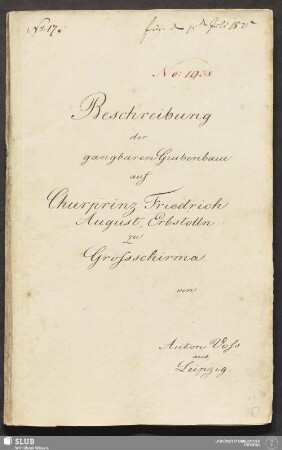 No 17.
No: 1938
Beschreibung
der
gangbaren Grubenbaue
auf
Churprinz Friedrich
August, Erbstolln
zu
Grossschirma
von
Anton Voss
aus
Leipzig.
SLUB
Wir führen Wissen.
UNIVERSITÄTSBIBLIOTHEK
FREIBERG